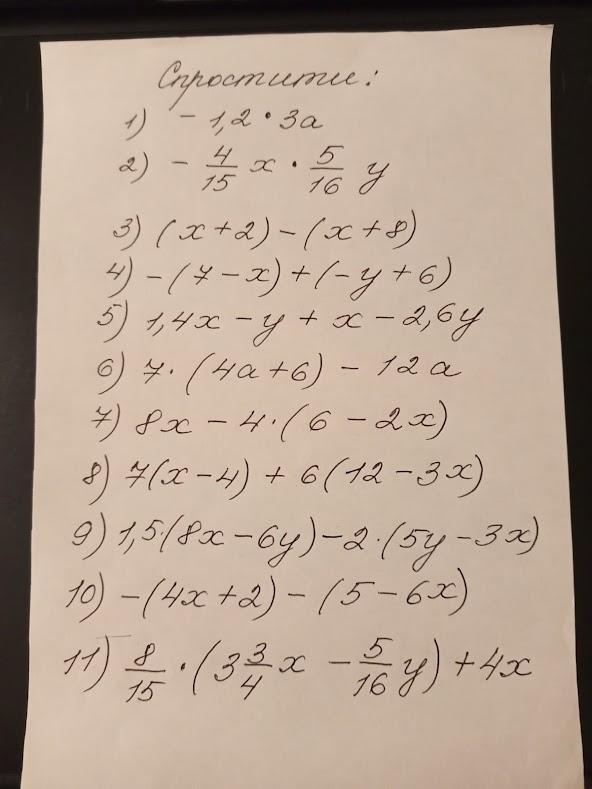 Спростити:
1) - 1,2 • 3a
2) - 4/15 x • 5/16 y
3) (x+2)-(x+8)
4) -(7-x)+(-y+6)
5) 1,4x-y+x-2,6y
6) 7·(4a+6)-12a
7) 8x-4·(6-2x)
8) 7(x-4)+6(12-3x)
9) 1,5·(8x-6y)-2·(5y-3x)
10) -(4x+2)-(5-6x)
11) 8/15 •(3 3/4 x - 5/16 y)+4x